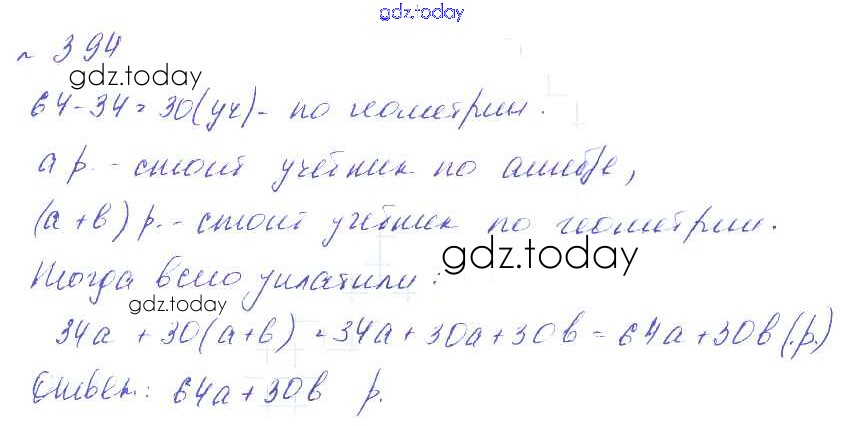 gdz.today
№ 394
gdz.today
64-34=30(уч)- по геометрии.
а р. - стоит учебник по алгебре,
(а+в) р. - стоит учебник по геометрии.
gdz.today
Тогда всего уплатили:
gdz.today
34а + 30(а+в) = 34а + 30а + 30в = 64а + 30в (р.)
Ответ: 64а + 30в р.